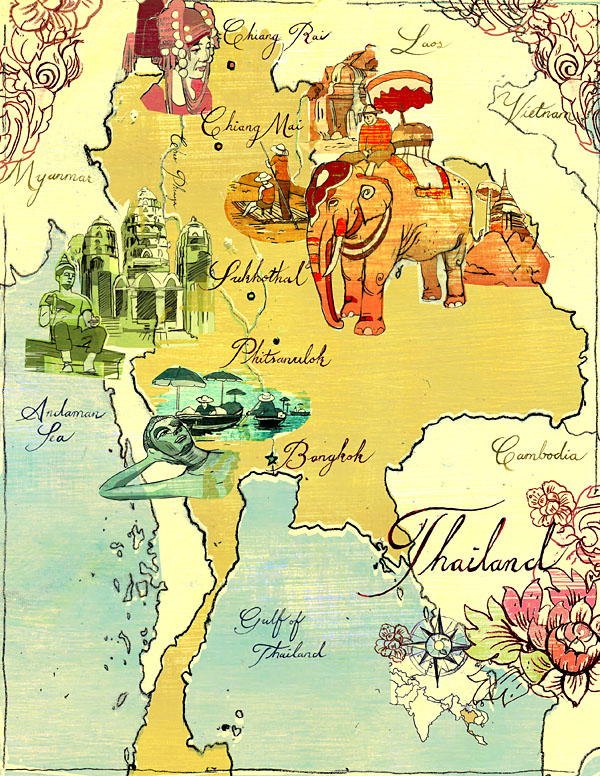 Chiang Rai
Laos
Chiang Mai
Vietnam
Myanmar
Sukhothai
Phitsanulok
Andaman
Sea
Bangkok
Cambodia
Thailand
Gulf of
Thailand